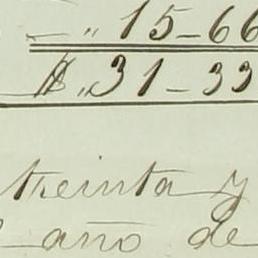 " 15-66
$ " 31-33
treinta y
año de